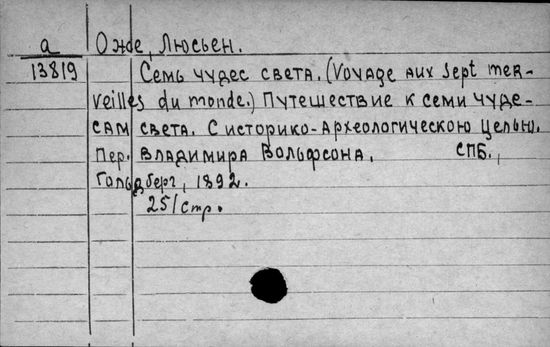 а Оже, Люсьен.
13819 Семь чудес света. (Voyage aux sept mer-
veilles du monde.) Путешествие к семи чуде-
сам света. С историко-археологическою целью.
Пер. Владимира Вольфсона. СПБ.,
Гольдберг, 1892.
251 стр.